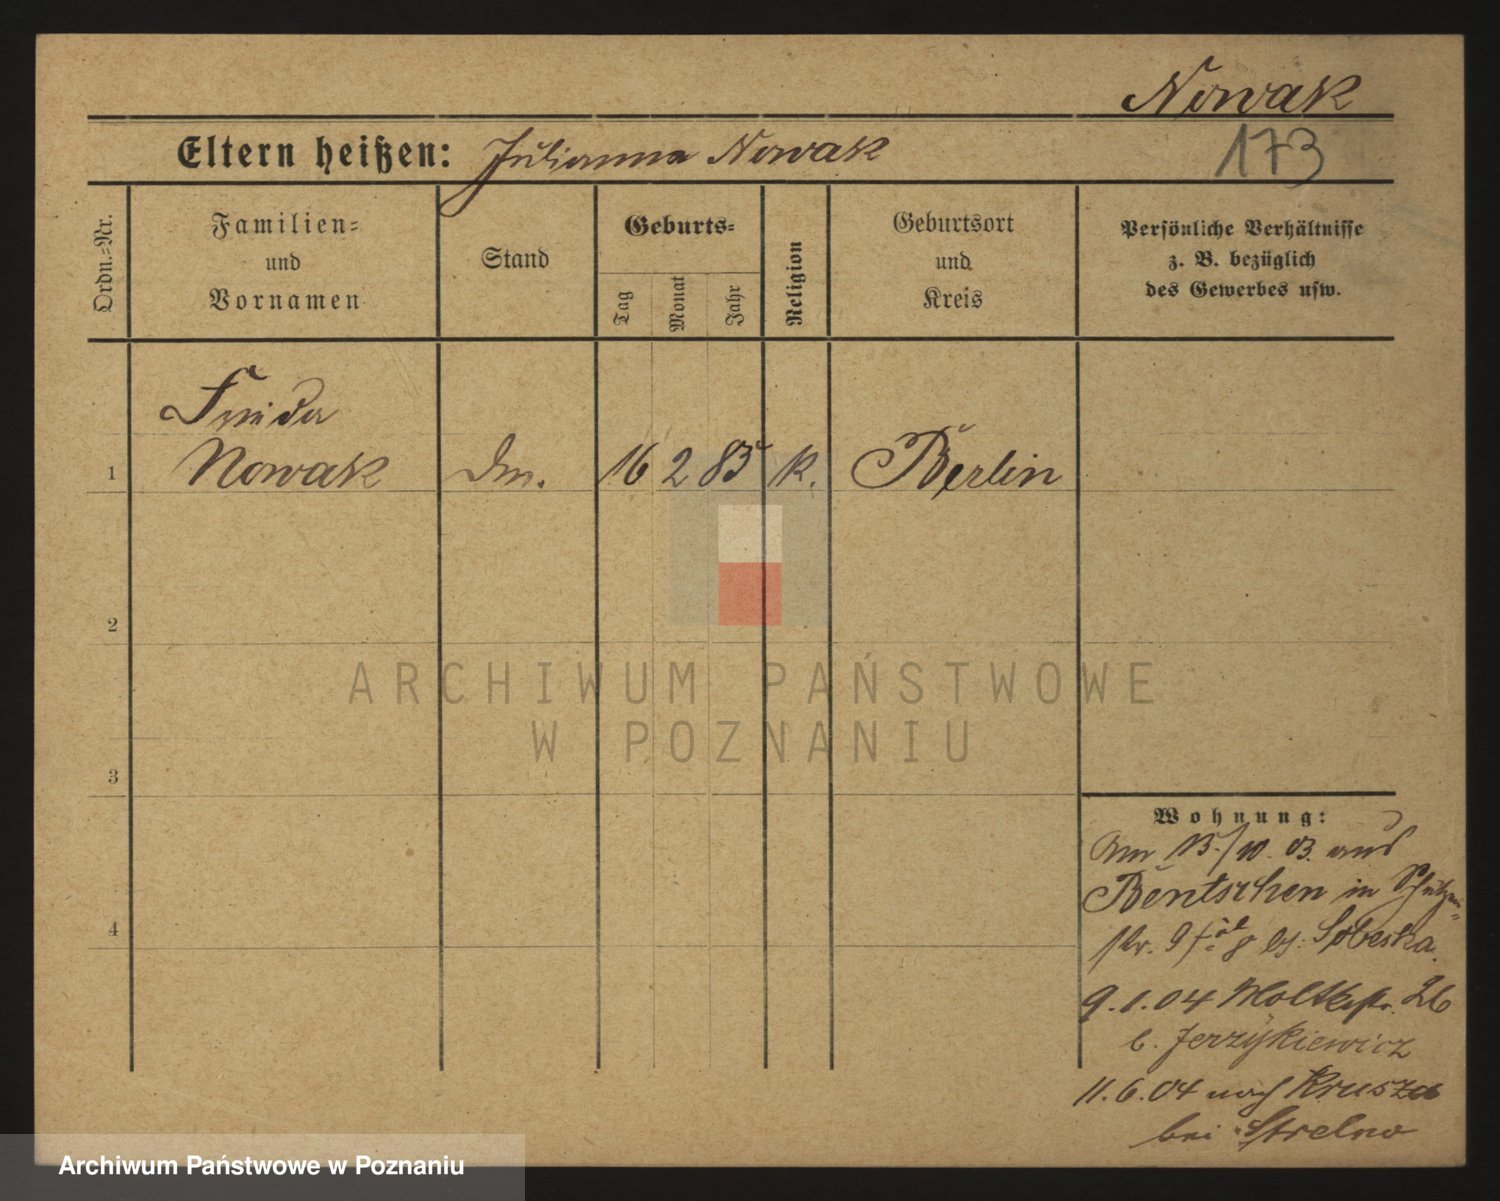 Nowak
173
Eltern heißen: Julianna Nowak
Ordn.-Nr.
Familien-
und
Vornamen
Stand
Geburts-
Tag
Monat
Jahr
Religion
Geburtsort
und
Kreis
Persönliche Verhältnisse
z. B. bezüglich
des Gewerbes usw.
Frieda
1 Nowak Dm. 16 2 85 k. Berlin
2
3
4
ARCHIWUM PAŃSTWOWE
W POZNANIU
Wohnung:
Am 15./10. 03. aus
Bentschen in Schützen-
str. 9 bei Sobeska.
9.1.04 Moltkestr. 26
b. Jerzykiewicz
11.6.04 nach Krusza
bei Strelno
Archiwum Państwowe w Poznaniu